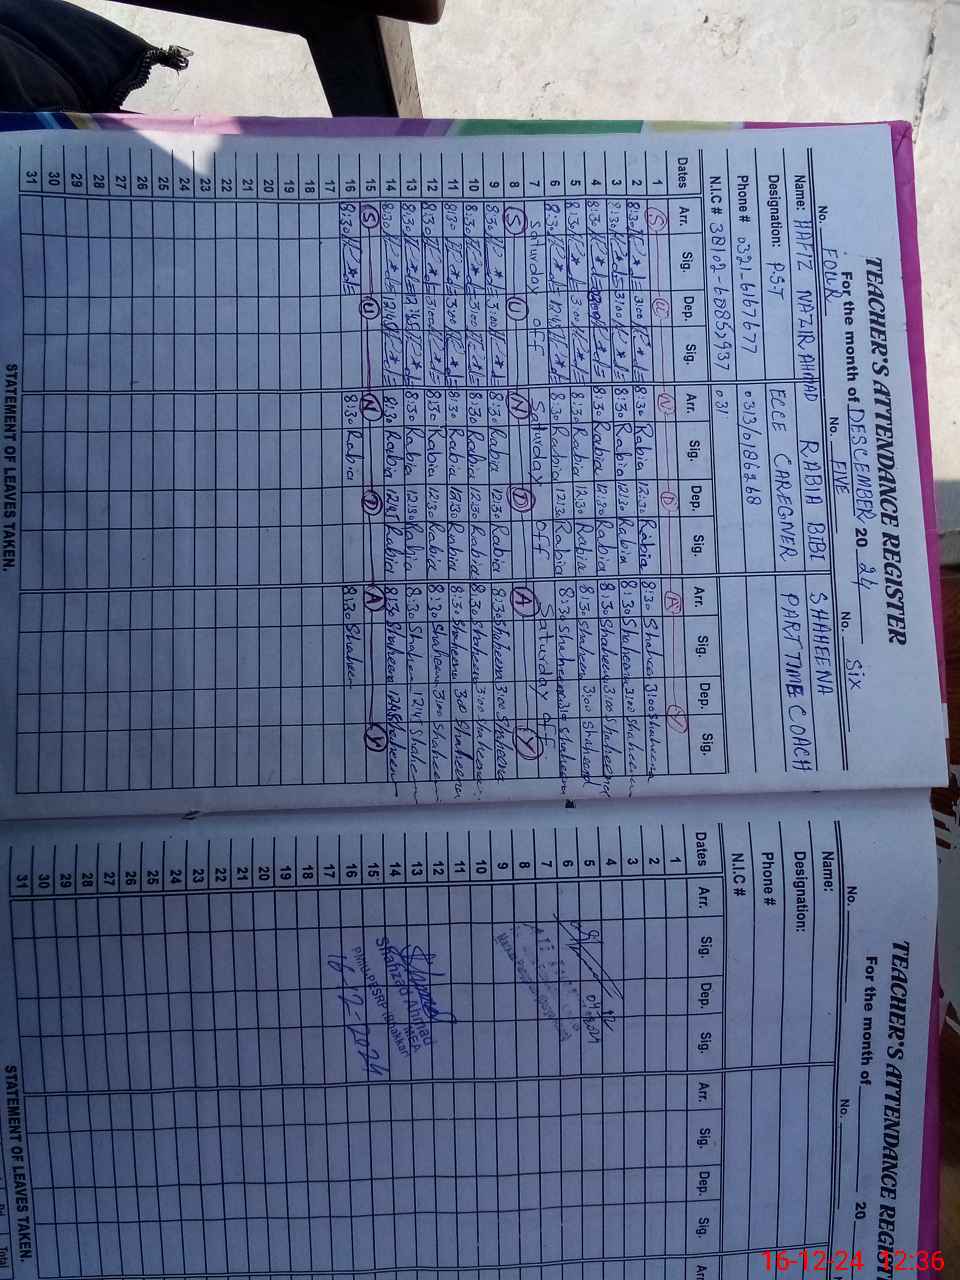 TEACHER'S ATTENDANCE REGISTER
For the month of DESCEMBER 20 24
No. FOUR No. FIVE No. Six
Name: HAFIZ NAZIR AHMAD RABIA BIBI SHAHEENA
Designation: P.S.T ECCE CAREGIVER PART TIME COACH
Phone # 0321-6167677 0313/0186268
N.I.C # 031
Dates Arr. Sig. Dep. Sig. Arr. Sig. Dep. Sig. Arr. Sig. Dep. Sig.
1 S U N D A Y
2 8:30 3:00 8:30 Rabia 12:30 Rabia 8:30 Shaheen 3:00 Shaheena
3 8:30 3:00 8:30 Rabia 12:30 Rabia 8:30 Shaheena 3:00 Shaheena
4 8:30 8:30 Rabia 12:30 Rabia 8:30 Shaheena 3:00 Shaheena
5 8:30 3:00 8:30 Rabia 12:30 Rabia 8:30 Shaheen 3:00 Shaheena
6 8:30 12:45 8:30 Rabia 12:30 Rabia 8:30 Shaheena Shaheena
7 Saturday off Saturday off Saturday off
8 S U N D A Y
9 8:30 3:00 8:30 Rabia 12:30 Rabia 8:30 Shaheena 3:00 Shaheena
10 8:30 3:00 8:30 Rabia 12:30 Rabia 8:30 Shaheena 3:00 Shaheena
11 8:30 3:00 8:30 Rabia 12:30 Rabia 8:30 Shaheena 3:00 Shaheena
12 8:30 3:00 8:30 Rabia 12:30 Rabia 8:30 Shaheen 3:00 Shaheen
13 8:30 8:30 Rabia 12:30 Rabia 8:30 Shaheen Shaheen
14 8:30 12:45 8:30 Rabia 12:45 Rabia 8:30 Shaheena 12:45 Shaheen
15 S U N D A Y
16 8:30 8:30 Rabia 8:30 Shaheen
17
18
19
20
21
22
23
24
25
26
27
28
29
30
31
STATEMENT OF LEAVES TAKEN.
TEACHER'S ATTENDANCE REGIST
For the month of 20
No. No.
Name:
Designation:
Phone #
N.I.C #
Dates Arr. Sig. Dep. Sig. Arr. Sig. Dep. Sig. Arr
1
2
3
4
5
6
7
8
9
10
11
12
13
14
15
16
17
18
19
20
21
22
23
24
25
26
27
28
29
30
31
Shahzad Ahmad
MEA
16-12-2024
STATEMENT OF LEAVES TAKEN.
Total
16-12-24 12:36